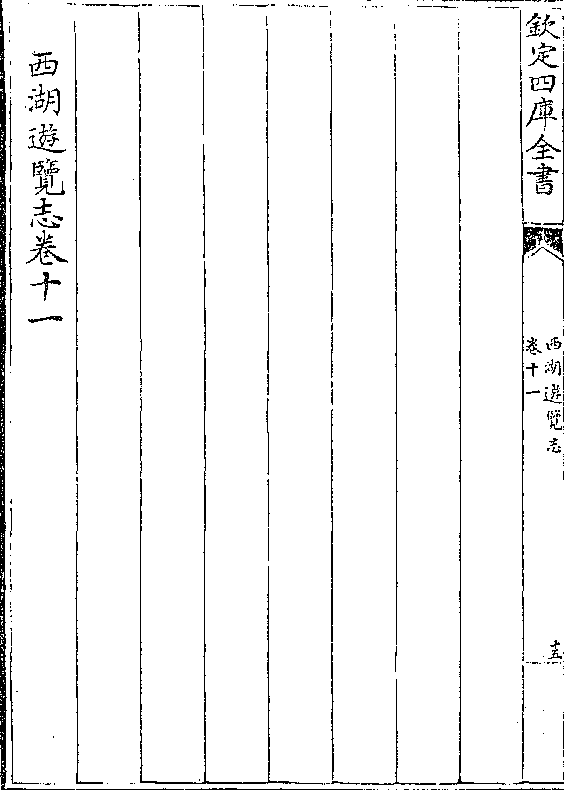 欽定四庫全書
西湖遊覽志
卷十一
十五
西湖遊覽志卷十一